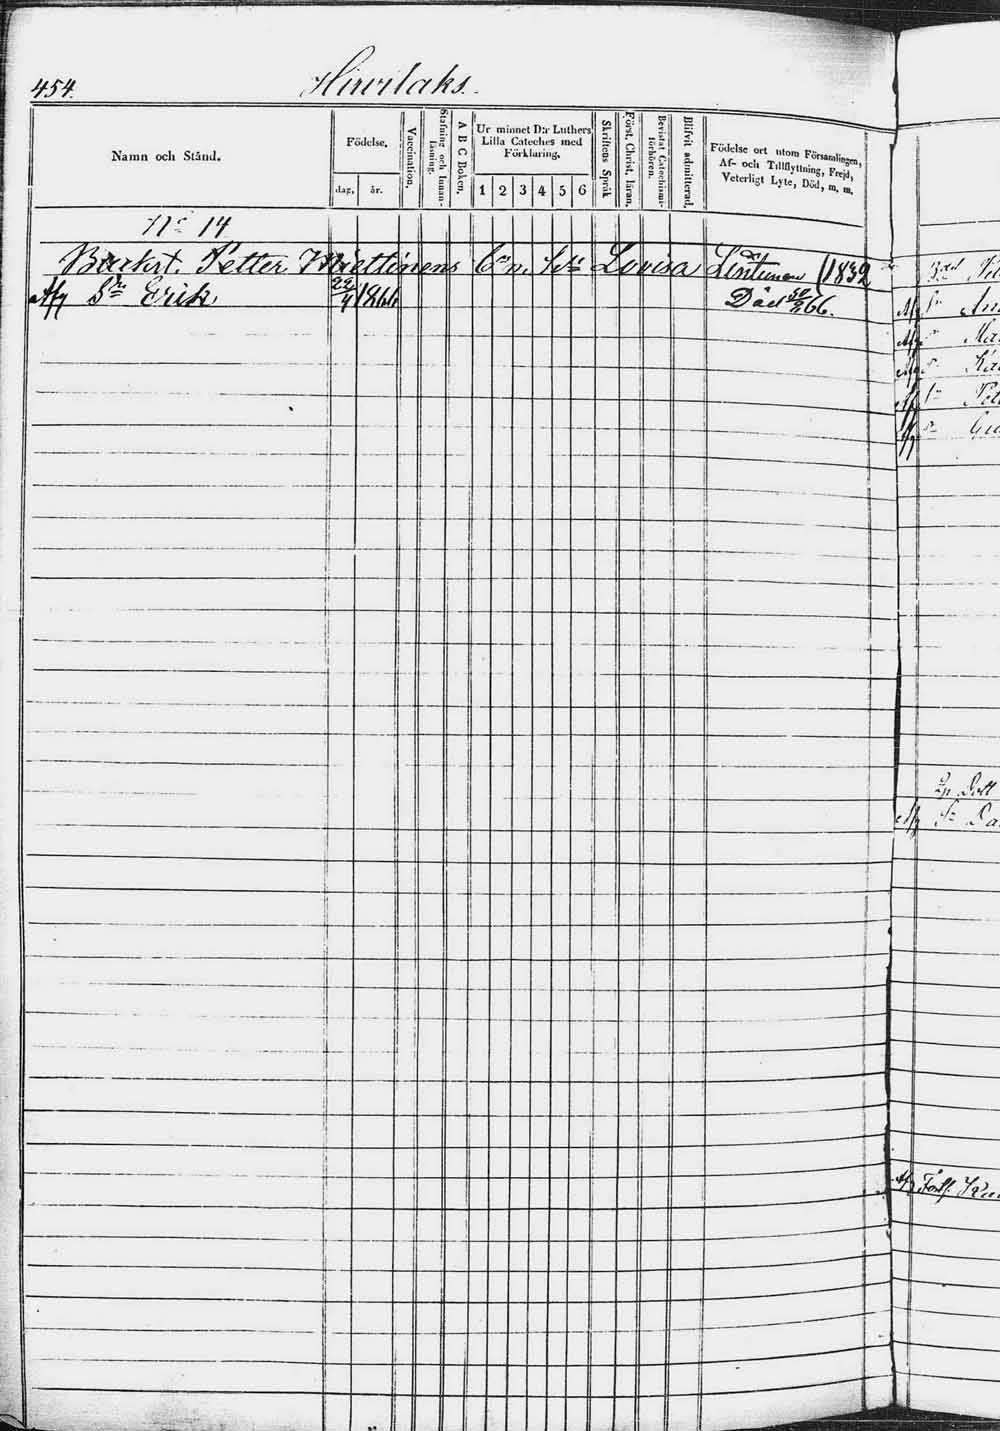 454.
Hirvilaks.
Namn och Stånd.
Födelse.
dag.
år.
Vaccination.
Stafning och Innan-
läsning.
A B C Boken.
Ur minnet D:r Luthers
Lilla Cateches med
Förklaring.
1 2 3 4 5 6
Skriftens Språk
Först. Christ. läran.
Bevistat Catechismi-
förhören.
Blifvit admitterad.
Födelse ort utom Församlingen,
Af- och Tillflyttning, Frejd,
Veterligt Lyte, Död, m. m.
No 14
Petter Miettinens Lovisa Lintunen (1832
Afg Sn Erik 22/4 1866 Död 30/8 66.
Afg
Afg
Afg
Afg
Afg